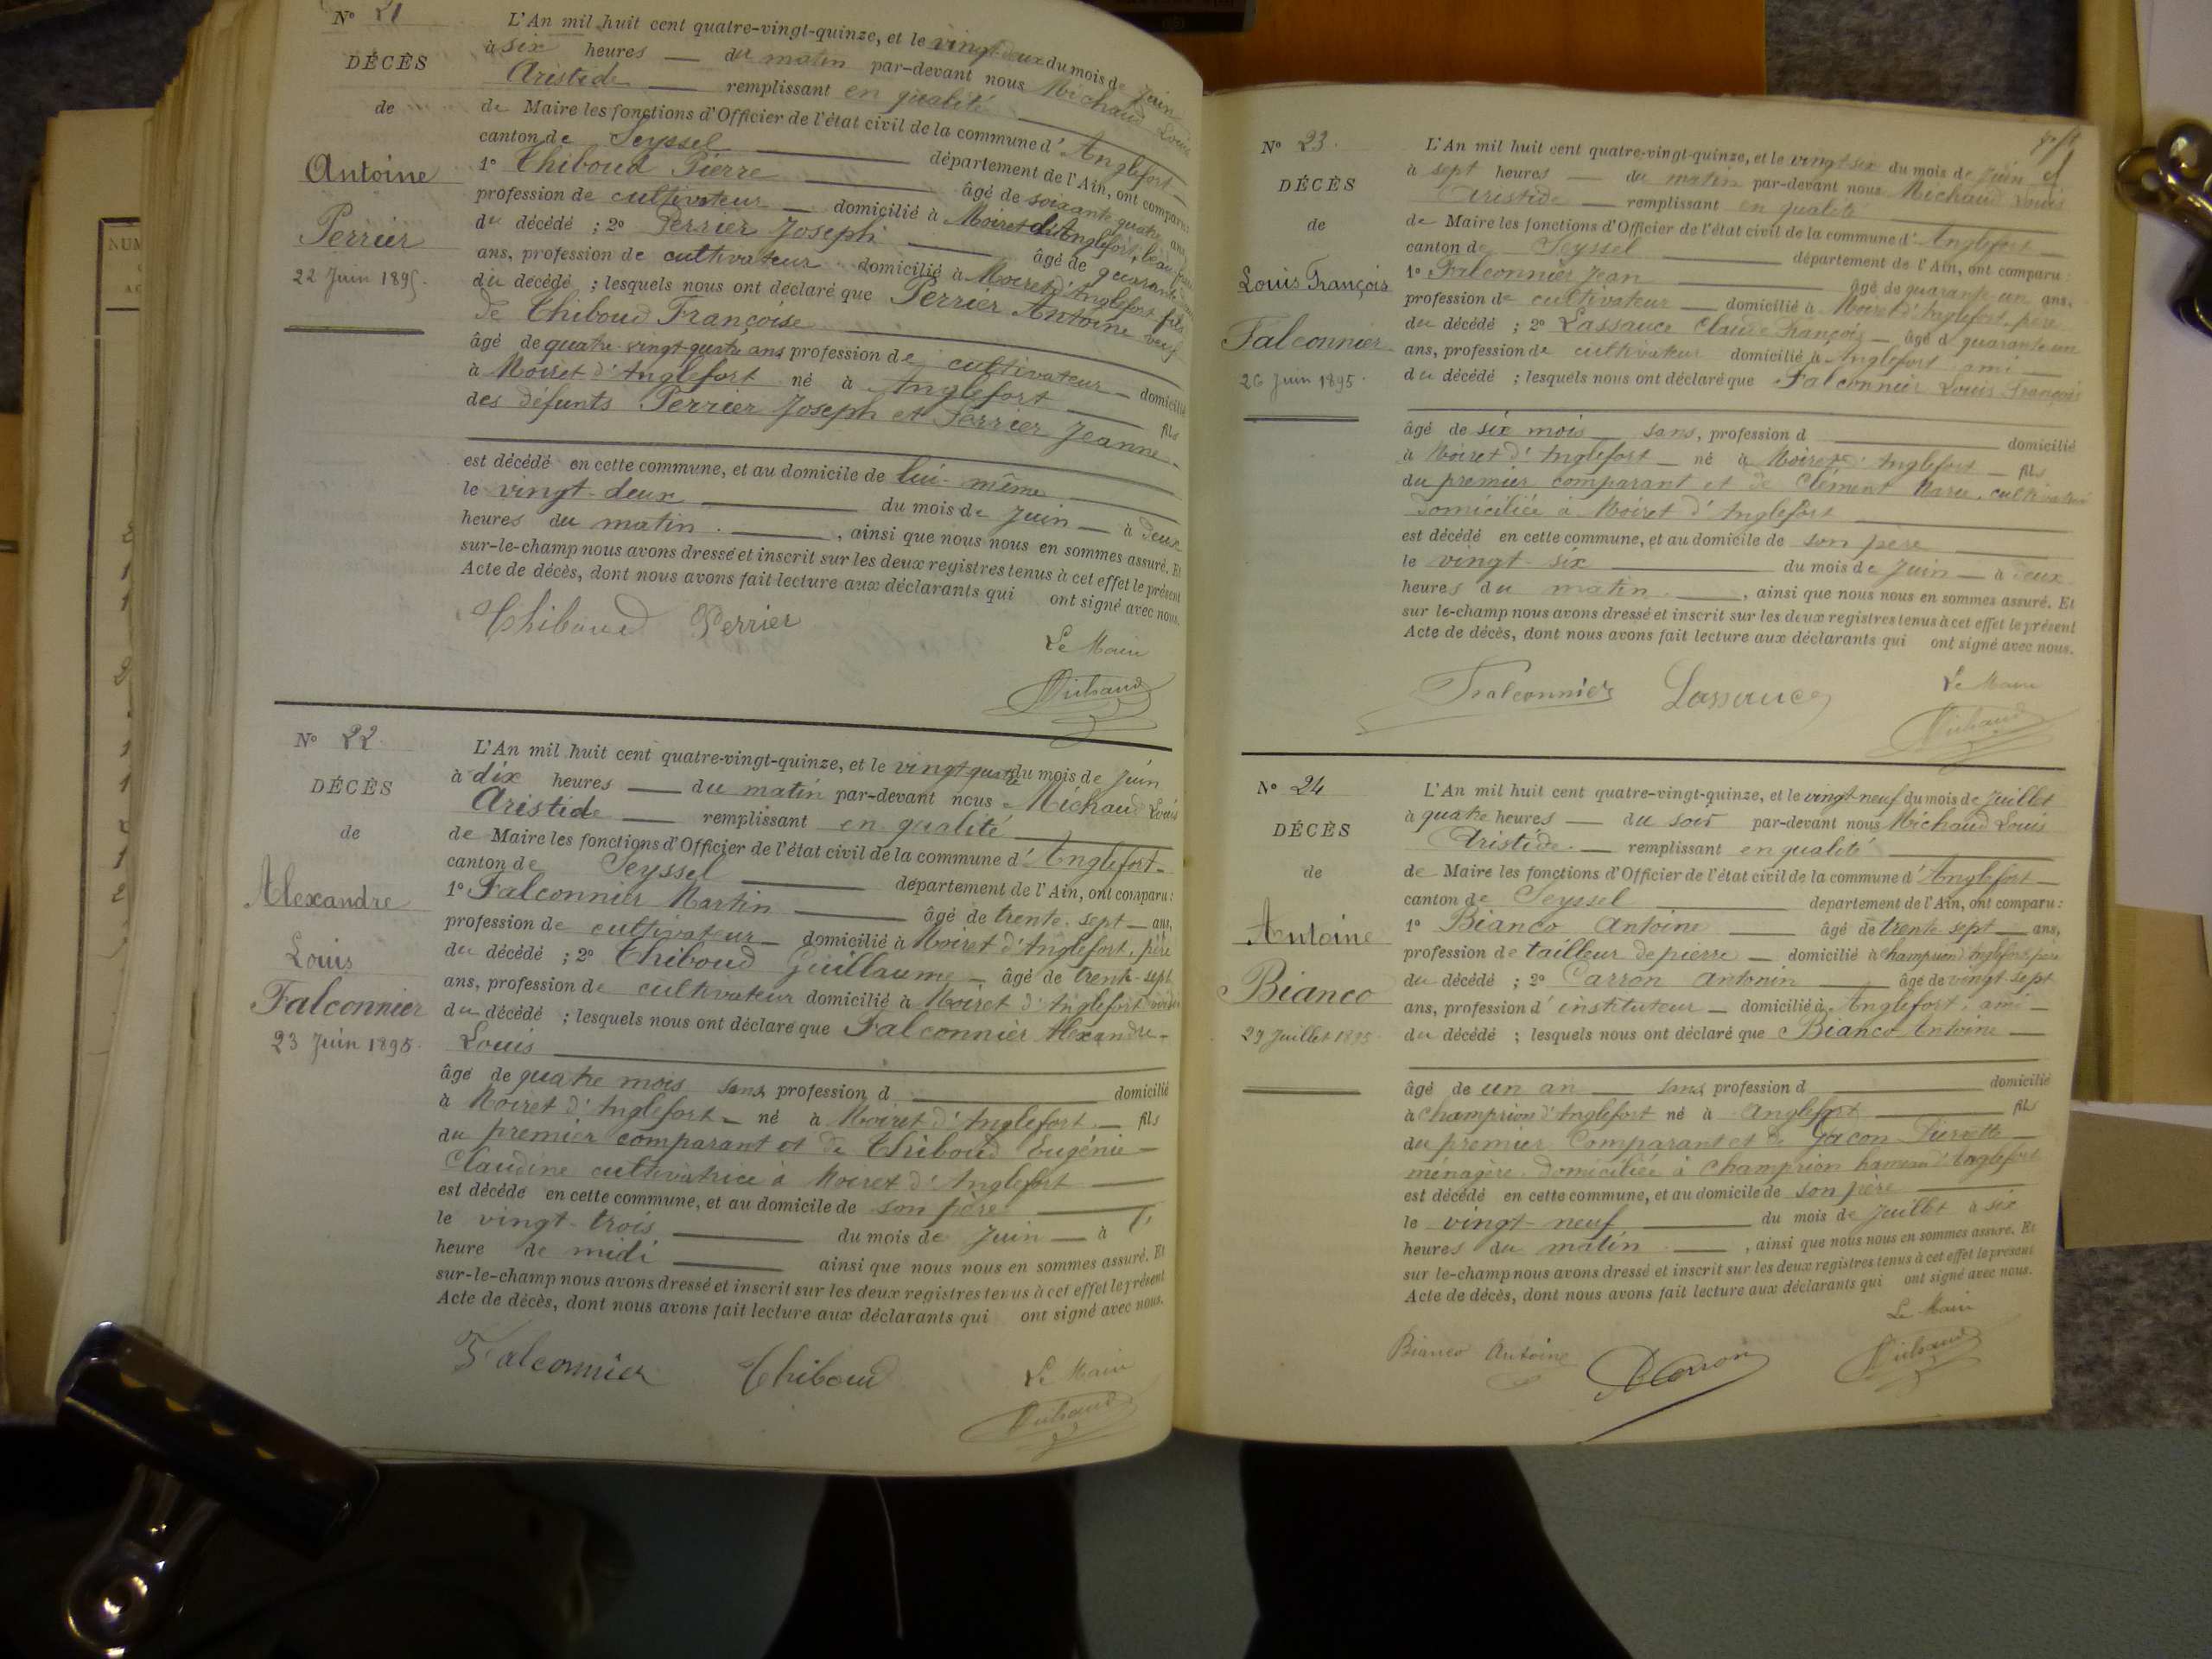 N° 21
DÉCÈS
de
Antoine
Perrier
22 Juin 1895.
L'An mil huit cent quatre-vingt-quinze, et le vingt-deux du mois de Juin
à six heures — du matin par-devant nous Michaud Louis
Aristide — remplissant en qualité
de Maire les fonctions d'Officier de l'état civil de la commune d'Anglefort
canton de Seyssel — département de l'Ain, ont comparu
1° Thiboud Pierre — âgé de soixante quatre ans
profession de cultivateur — domicilié à Moiret d'Anglefort, beau-frère
du décédé ; 2° Perrier Joseph — âgé de quarante
ans, profession de cultivateur domicilié à Moiret d'Anglefort fils
du décédé ; lesquels nous ont déclaré que Perrier Antoine veuf
de Thiboud Françoise
âgé de quatre-vingt-quatre ans profession de cultivateur — domicilié
à Moiret d'Anglefort né à Anglefort — fils
des défunts Perrier Joseph et Perrier Jeanne —
est décédé en cette commune, et au domicile de lui-même
le vingt-deux — du mois de Juin — à deux
heures du matin. — , ainsi que nous nous en sommes assuré. Et
sur-le-champ nous avons dressé et inscrit sur les deux registres tenus à cet effet le présent
Acte de décès, dont nous avons fait lecture aux déclarants qui ont signé avec nous.
Thiboud Perrier
Le Maire
Michaud
N° 22
DÉCÈS
de
Alexandre
Louis
Falconnier
23 Juin 1895.
L'An mil huit cent quatre-vingt-quinze, et le vingt-quatre du mois de Juin
à dix heures — du matin par-devant nous Michaud Louis
Aristide — remplissant en qualité
de Maire les fonctions d'Officier de l'état civil de la commune d'Anglefort —
canton de Seyssel — département de l'Ain, ont comparu :
1° Falconnier Martin — âgé de trente-sept — ans,
profession de cultivateur — domicilié à Moiret d'Anglefort, père
du décédé ; 2° Thiboud Guillaume — âgé de trente-sept
ans, profession de cultivateur domicilié à Moiret d'Anglefort voisin
du décédé ; lesquels nous ont déclaré que Falconnier Alexandre —
Louis
âgé de quatre mois sans profession d — domicilié
à Moiret d'Anglefort — né à Moiret d'Anglefort — fils
du premier comparant et de Thiboud Eugénie —
Claudine cultivatrice à Moiret d'Anglefort —
est décédé en cette commune, et au domicile de son père —
le vingt-trois — du mois de Juin — à l'
heure de midi — ainsi que nous nous en sommes assuré. Et
sur-le-champ nous avons dressé et inscrit sur les deux registres tenus à cet effet le présent
Acte de décès, dont nous avons fait lecture aux déclarants qui ont signé avec nous.
Falconnier Thiboud
Le Maire
Michaud
N° 23.
DÉCÈS
de
Louis François
Falconnier
26 Juin 1895.
L'An mil huit cent quatre-vingt-quinze, et le vingt six du mois de Juin
à sept heures — du matin par-devant nous Michaud Louis
Aristide — remplissant en qualité
de Maire les fonctions d'Officier de l'état civil de la commune d'Anglefort —
canton de Seyssel — département de l'Ain, ont comparu :
1° Falconnier Jean — âgé de quarante-un ans,
profession de cultivateur — domicilié à Moiret d'Anglefort, père
du décédé ; 2° Lassauce Claude François — âgé d quarante un
ans, profession de cultivateur domicilié à Anglefort ami —
du décédé ; lesquels nous ont déclaré que Falconnier Louis François
âgé de six mois — sans, profession d — domicilié
à Moiret d'Anglefort — né à Moiret d'Anglefort — fils
du premier comparant et de Clément Marie, cultivatrice
domiciliée à Moiret d'Anglefort
est décédé en cette commune, et au domicile de son père —
le vingt-six — du mois de Juin — à deux
heures du matin — , ainsi que nous nous en sommes assuré. Et
sur le-champ nous avons dressé et inscrit sur les deux registres tenus à cet effet le présent
Acte de décès, dont nous avons fait lecture aux déclarants qui ont signé avec nous.
Falconnier Lassauce
Le Maire
Michaud
N° 24
DÉCÈS
de
Antoine
Bianco
29 Juillet 1895.
L'An mil huit cent quatre-vingt-quinze, et le vingt-neuf du mois de Juillet
à quatre heures — du soir par-devant nous Michaud Louis
Aristide. — remplissant en qualité
de Maire les fonctions d'Officier de l'état civil de la commune d'Anglefort —
canton de Seyssel — département de l'Ain, ont comparu :
1° Bianco Antoine — âgé de trente-sept — ans,
profession de tailleur de pierre — domicilié à Champrion d'Anglefort, père
du décédé ; 2° Carron Antonin — âgé de vingt-sept
ans, profession d'instituteur — domicilié à Anglefort, ami —
du décédé ; lesquels nous ont déclaré que Bianco Antoine —
âgé de un an — sans profession d — domicilié
à Champrion d'Anglefort né à Anglefort — fils
du premier Comparant et de Pierrette —
ménagère domiciliée à Champrion hameau d'Anglefort
est décédé en cette commune, et au domicile de son père —
le vingt-neuf — du mois de Juillet à six
heures du matin. — , ainsi que nous nous en sommes assuré. Et
sur le-champ nous avons dressé et inscrit sur les deux registres tenus à cet effet le présent
Acte de décès, dont nous avons fait lecture aux déclarants qui ont signé avec nous.
Le Maire
Bianco Antoine
ACarron
Michaud